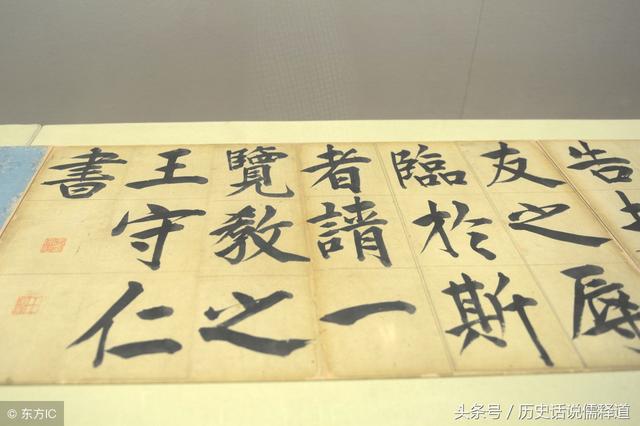 告
友之辱
臨於斯
者請一
覽教之
王守仁
書
© 东方IC
头条号 / 历史话说儒释道